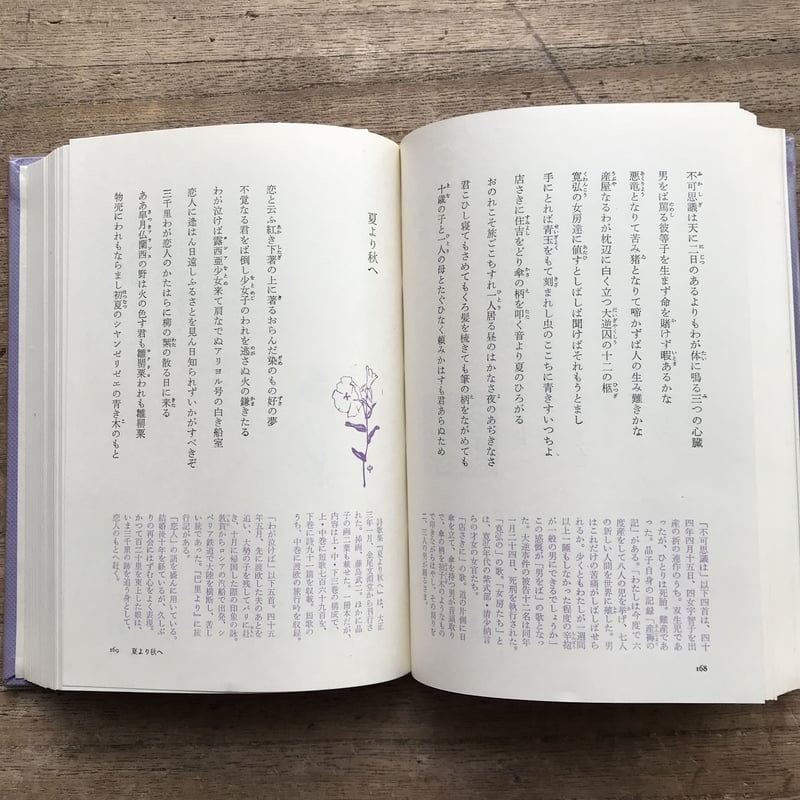 不可思議は天に二日のあるよりもわが体に鳴る三つの心臓
男をば罵る彼等子を生まず命を賭けず暇あるかな
悪竜となりて苦み猪となりて啼かずば人の生み難きかな
産屋なるわが枕辺に白く立つ大逆囚の十二の柩
寛弘の女房達に値すとしばしば聞けばそれもうとまし
手にとれば青玉をもて刻まれし虫のここちに青きすいつちよ
店さきに住吉をどり傘の柄を叩く音より夏のひろがる
おのれこそ旅ごこちすれ一人居る昼のはかなさ夜のあぢきなさ
君こひし寝てもさめてもくろ髪を梳きても筆の柄をながめても
十歳の子と一人の母とたぐひなく頼みかはすも君あらぬため
「不可思議は」以下四首は、四十
四年四月十五日、四女宇智子を出
産の折の連作のうち。双生児であ
ったが、ひとりは死胎。難産であ
った。晶子自身の記録「産褥の
記」がある。「わたしは今度で六
度産をして八人の児を挙げ、七人
の新しい人間を世界に殖した。男
はこれだけの苦痛が屡しばせら
れるか。少くともわたしが一週間
以上一睡もしなかつた程度の辛抱
が一般の男にできるでしょうか」
この感慨が「男をば」の歌となっ
た。大逆事件の被告十二名は同年
一月二十四日、死刑を執行された。
「寛弘の」の歌。「女房たち」と
は、寛弘年代の紫式部・清少納言
らの才女の女官たち。
「店さきに」の歌。道の十側に日
傘を立て、傘を持つ男が音頭取り
168
夏より秋へ
恋と云ふ紅き下著の上に著るおらんだ染のもの好の夢
不覚なる君をば倒し少女子のわれを逃さぬ火の鎌きたる
わが泣けば露西亜少女来て肩なでぬアリヨル号の白き船室
恋人に逢はん日遠しふるさとを見ん日知られずいかがすべきぞ
三千里わが恋人のかたはらに柳の絮の散る日に来る
ああ皐月仏蘭西の野は火の色す君も雛罌粟われも雛罌粟
物売にわれもならまし初夏のシヤンゼリゼエの青き木のもと
詩歌集『夏より秋へ』は、大正
三年一月、金尾文淵堂から刊行さ
れた。挿画、藤島武二。ほかに晶
子の画二葉も載せた。一冊本だが、
内容は上・中・下三巻の構成で、
上・中巻に短歌七百六十九首を、
下巻に詩九十一篇を収載。短歌の
うち、中巻に渡欧の旅行吟を収録。
「わが泣けば」以下五首。四十五
年五月、先に渡欧した夫のあとを
追い、大勢の子を残してパリに赴
き、十月に帰国した際の印象の詠。
敦賀からロシアの汽船で出発、シ
ベリア鉄道で大陸を横断し、苦し
い旅であった。『巴里より』に旅
行記がある。
「恋人」の語を盛んに用いている。
結婚後十年を経ているが、久しぶ
りの再会にはずむ心をよく表現。
かつて百二十里を哀しとした彼女、
いま三千里の旅を追う身として、
恋人のもとへ赴く。
169 夏より秋へ